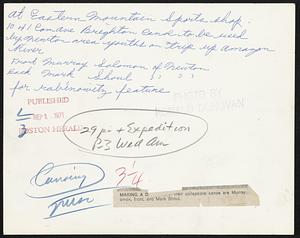 at Eastern Mountain Sports shop.
1041 Comave Brighton Canoe to be used
by Newton area youths on trip up Amazon
River
Front Murray Solomon of Newton
back Mark Shoul " " "
for rabinovitz feature
PUBLISHED
SEP 1 1971
BOSTON HERALD
PHOTO BY
DONOVAN
29 pm + Expedition
P3 Wed Am
Canoeing
3/4
MAKING A D
their collapsible canoe are Murray
omon, front, and Mark Shoul.